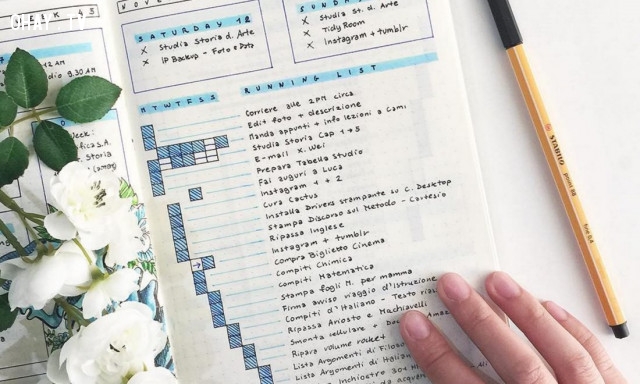 OHAY TV
45
NOVE
12 AM
9.30 AM
S.A.
Storia
SATURDAY 12
x Studia Storia d. Arte
x iP Backup - Foto e Dati
SUND
x Studia St. d. Arte
x Tidy Room
x Instagram + tumblr
MTWTFSS
RUNNING LIST
Corriere alle 2PM circa
Edit foto + descrizione
Manda appunti + info lezioni a Cami
Studia Storia Cap 1+5
E-mail X. Wei
Prepara Tabella Studio
Fai auguri a Luca
Instagram + + 2
Cura Cactus
Installa Drivers stampante su C. Desktop
Stampa Discorso sul Metodo - Cartesio
Ripassa Inglese
Instagram + tumblr
Compra Biglietto Cinema
Compiti Chimica
Compiti Matematica
Stampa fogli M. per mamma
Firma avviso viaggio d'Istruzione
Compiti d'Italiano - Testo
Ripassa Ariosto e Machiavelli
Smonta cellulare +
Ripara volume rocket
Lista Argomenti di Filoso
Lista Argomenti di Italian
Inchiostro
STABILO point 88
fine 0.4